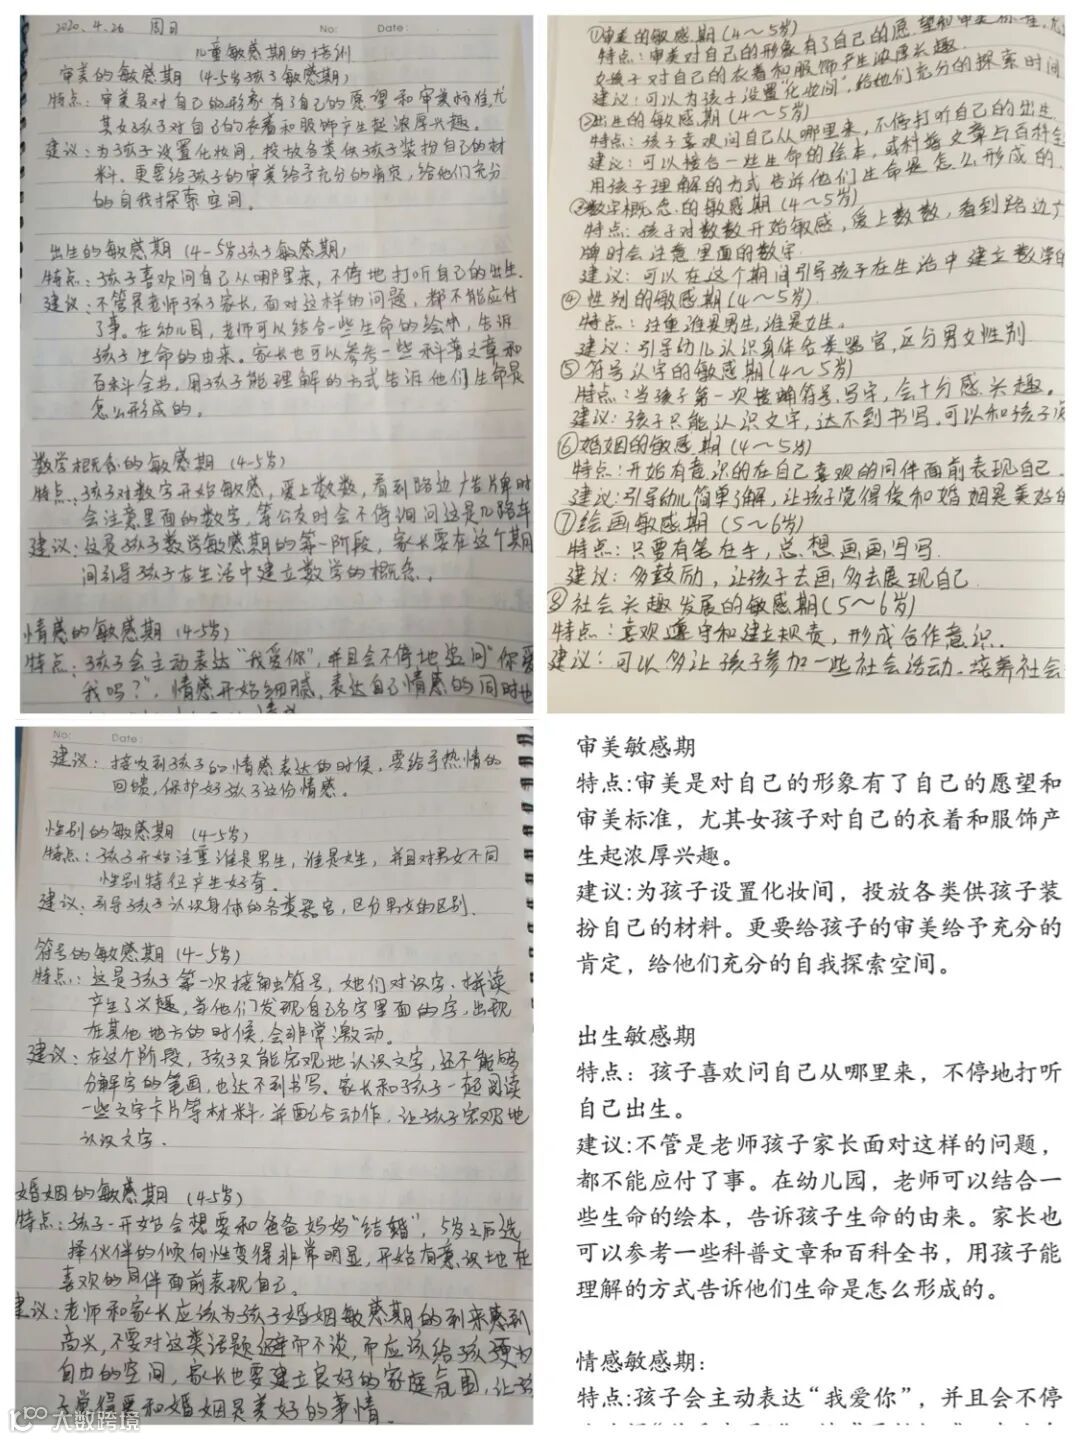 2020.4.26 周日 No: Date:
儿童敏感期的培训
审美的敏感期 (4-5岁孩子敏感期)
特点：审美是对自己的形象有了自己的愿望和审美标准,尤
其女孩子对自己的衣着和服饰产生起浓厚兴趣。
建议：为孩子设置化妆间，投放各类供孩子装扮自己的材
料。更要给孩子的审美给予充分的肯定，给他们充分
的自我探索空间。
出生的敏感期 (4-5岁孩子敏感期)
特点：孩子喜欢问自己从哪里来，不停地打听自己的出生.
建议：不管是老师孩子家长，面对这样的问题，都不能应付
了事。在幼儿园，老师可以结合一些生命的绘本，告诉
孩子生命的由来。家长也可以参考一些科普文章和
百科全书，用孩子能理解的方式告诉他们生命是
怎么形成的。
数学概念的敏感期 (4-5岁)
特点：孩子对数字开始敏感，爱上数数，看到路边广告牌时
会注意里面的数字，等公交时会不停询问这是几路车
建议：这是孩子数学敏感期的第一阶段，家长要在这个期
间引导孩子在生活中建立数学的概念。
情感的敏感期 (4-5岁)
特点：孩子会主动表达“我爱你”，并且会不停地追问“你爱
我吗？”，情感开始细腻，表达自己情感的同时也
①审美的敏感期 (4～5岁)
特点：审美对自己的形象有了自己的愿望和审美标准，尤
女孩子对自己的衣着和服饰产生浓厚兴趣.
建议：可以为孩子设置“化妆间”，给他们充分的探索时间
②出生的敏感期 (4～5岁)
特点：孩子喜欢问自己从哪里来，不停打听自己的出生.
建议：可以接合一些生命的绘本，或科普文章与百科全
用孩子理解的方式告诉他们生命是怎么形成的.
③数字概念的敏感期 (4～5岁)
特点：孩子对数数开始敏感，爱上数数，看到路边广
牌时会注意里面的数字.
建议：可以在这个期间引导孩子在生活中建立数学的
④性别的敏感期 (4～5岁).
特点：注重谁是男生，谁是女生。
建议：引导幼儿认识身体各类器官，区分男女性别
⑤符号认字的敏感期 (4～5岁)
特点：当孩子第一次接触符号、写字，会十分感兴趣。
建议：孩子只能认识文字，达不到书写.可以和孩子
⑥婚姻的敏感期 (4～5岁)
特点：开始有意识的在自己喜欢的同伴面前表现自己
建议：引导幼儿简单了解，让孩子觉得爱和婚姻是美好的
⑦绘画敏感期 (5～6岁)
特点：只要有笔在手，总想画画写写.
建议：多鼓励，让孩子去画，多去展现自己.
⑧社会兴趣发展的敏感期 (5～6岁)
特点：喜欢遵守和建立规责，形成合作意识.
建议：可以多让孩子参加一些社会活动.培养社会
No: Date:
建议：接收到孩子的情感表达的时候，要给予热情的
回馈，保护好孩子这份情感。
性别的敏感期 (4-5岁)
特点：孩子开始注重谁是男生，谁是女生，并且对男女不同
性别特征产生好奇。
建议：引导孩子认识身体的各类器官，区分男女的区别.
符号的敏感期 (4-5岁)
特点：这是孩子第一次接触符号，她们对识字、拼读
产生了兴趣，当他们发现自己名字里面的字，出现
在其他地方的时候，会非常激动。
建议：在这个阶段，孩子只能宏观地认识文字，还不能够
分解字的笔画，也达不到书写。家长和孩子一起阅读
一些文字卡片等材料，并配合动作，让孩子宏观地
认识文字.
婚姻的敏感期 (4-5岁)
特点：孩子一开始会想要和爸爸妈妈“结婚”，5岁之后选
择伙伴的倾向性变得非常明显，开始有意识地在
喜欢的同伴面前表现自己。
建议：老师和家长应该为孩子婚姻敏感期的到来感到
高兴，不要对这类话题避而不谈，而应该给孩子更为
自由的空间，家长也要建立良好的家庭氛围，让孩
子觉得爱和婚姻是美好的事情.
审美敏感期
特点:审美是对自己的形象有了自己的愿望和
审美标准，尤其女孩子对自己的衣着和服饰产
生起浓厚兴趣。
建议:为孩子设置化妆间，投放各类供孩子装
扮自己的材料。更要给孩子的审美给予充分的
肯定，给他们充分的自我探索空间。
出生敏感期
特点：孩子喜欢问自己从哪里来，不停地打听
自己出生。
建议:不管是老师孩子家长面对这样的问题，
都不能应付了事。在幼儿园，老师可以结合一
些生命的绘本，告诉孩子生命的由来。家长也
可以参考一些科普文章和百科全书，用孩子能
理解的方式告诉他们生命是怎么形成的。
情感敏感期：
特点:孩子会主动表达“我爱你”，并且会不停
大数跨境